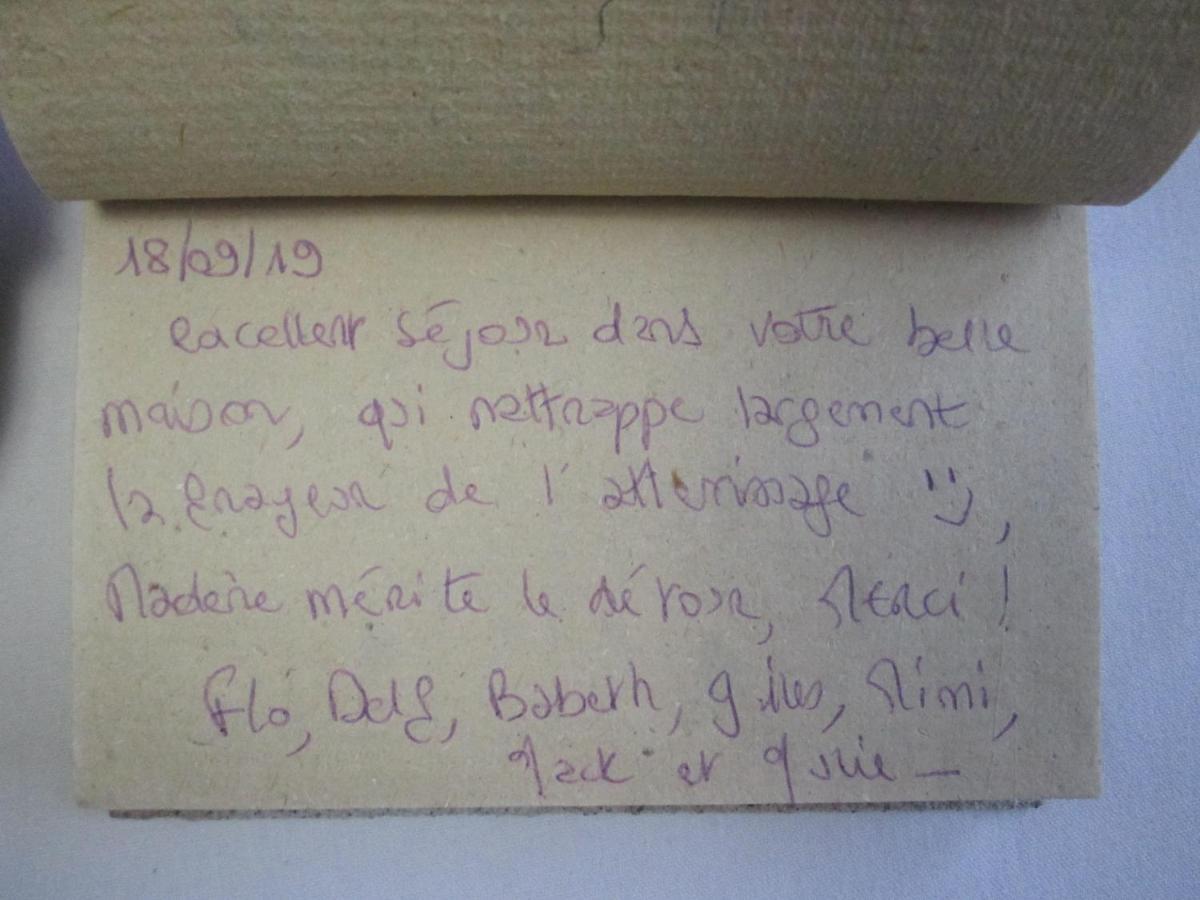 18/09/19
excellent séjour dans votre belle
maison, qui rattrappe largement
la frayeur de l'atterrissage :),
Madère mérite le détour, Merci !
Flo, Delf, Babeth, gilles, Mimi,
Mack et